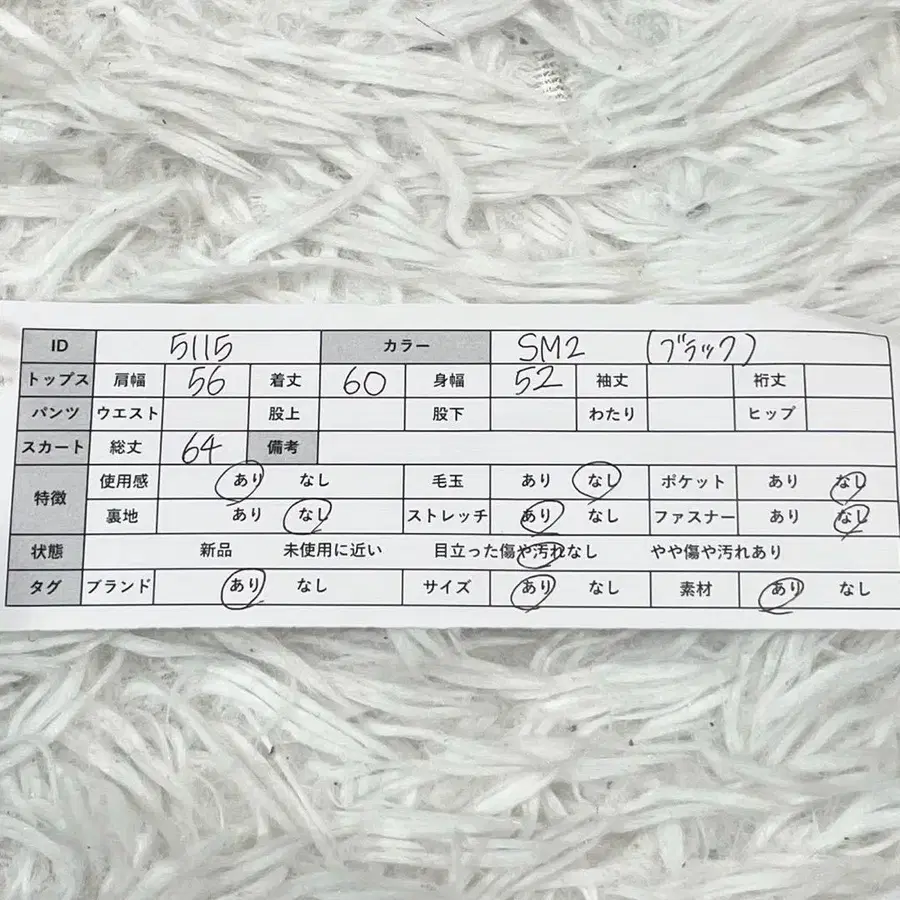 ID 5115 カラー SM2 (ブラック)
トップス 肩幅 56 着丈 60 身幅 52 袖丈 裄丈
パンツ ウエスト 股上 股下 わたり ヒップ
スカート 総丈 64 備考
特徴 使用感 あり なし 毛玉 あり なし ポケット あり なし
裏地 あり なし ストレッチ あり なし ファスナー あり なし
状態 新品 未使用に近い 目立った傷や汚れなし やや傷や汚れあり
タグ ブランド あり なし サイズ あり なし 素材 あり なし